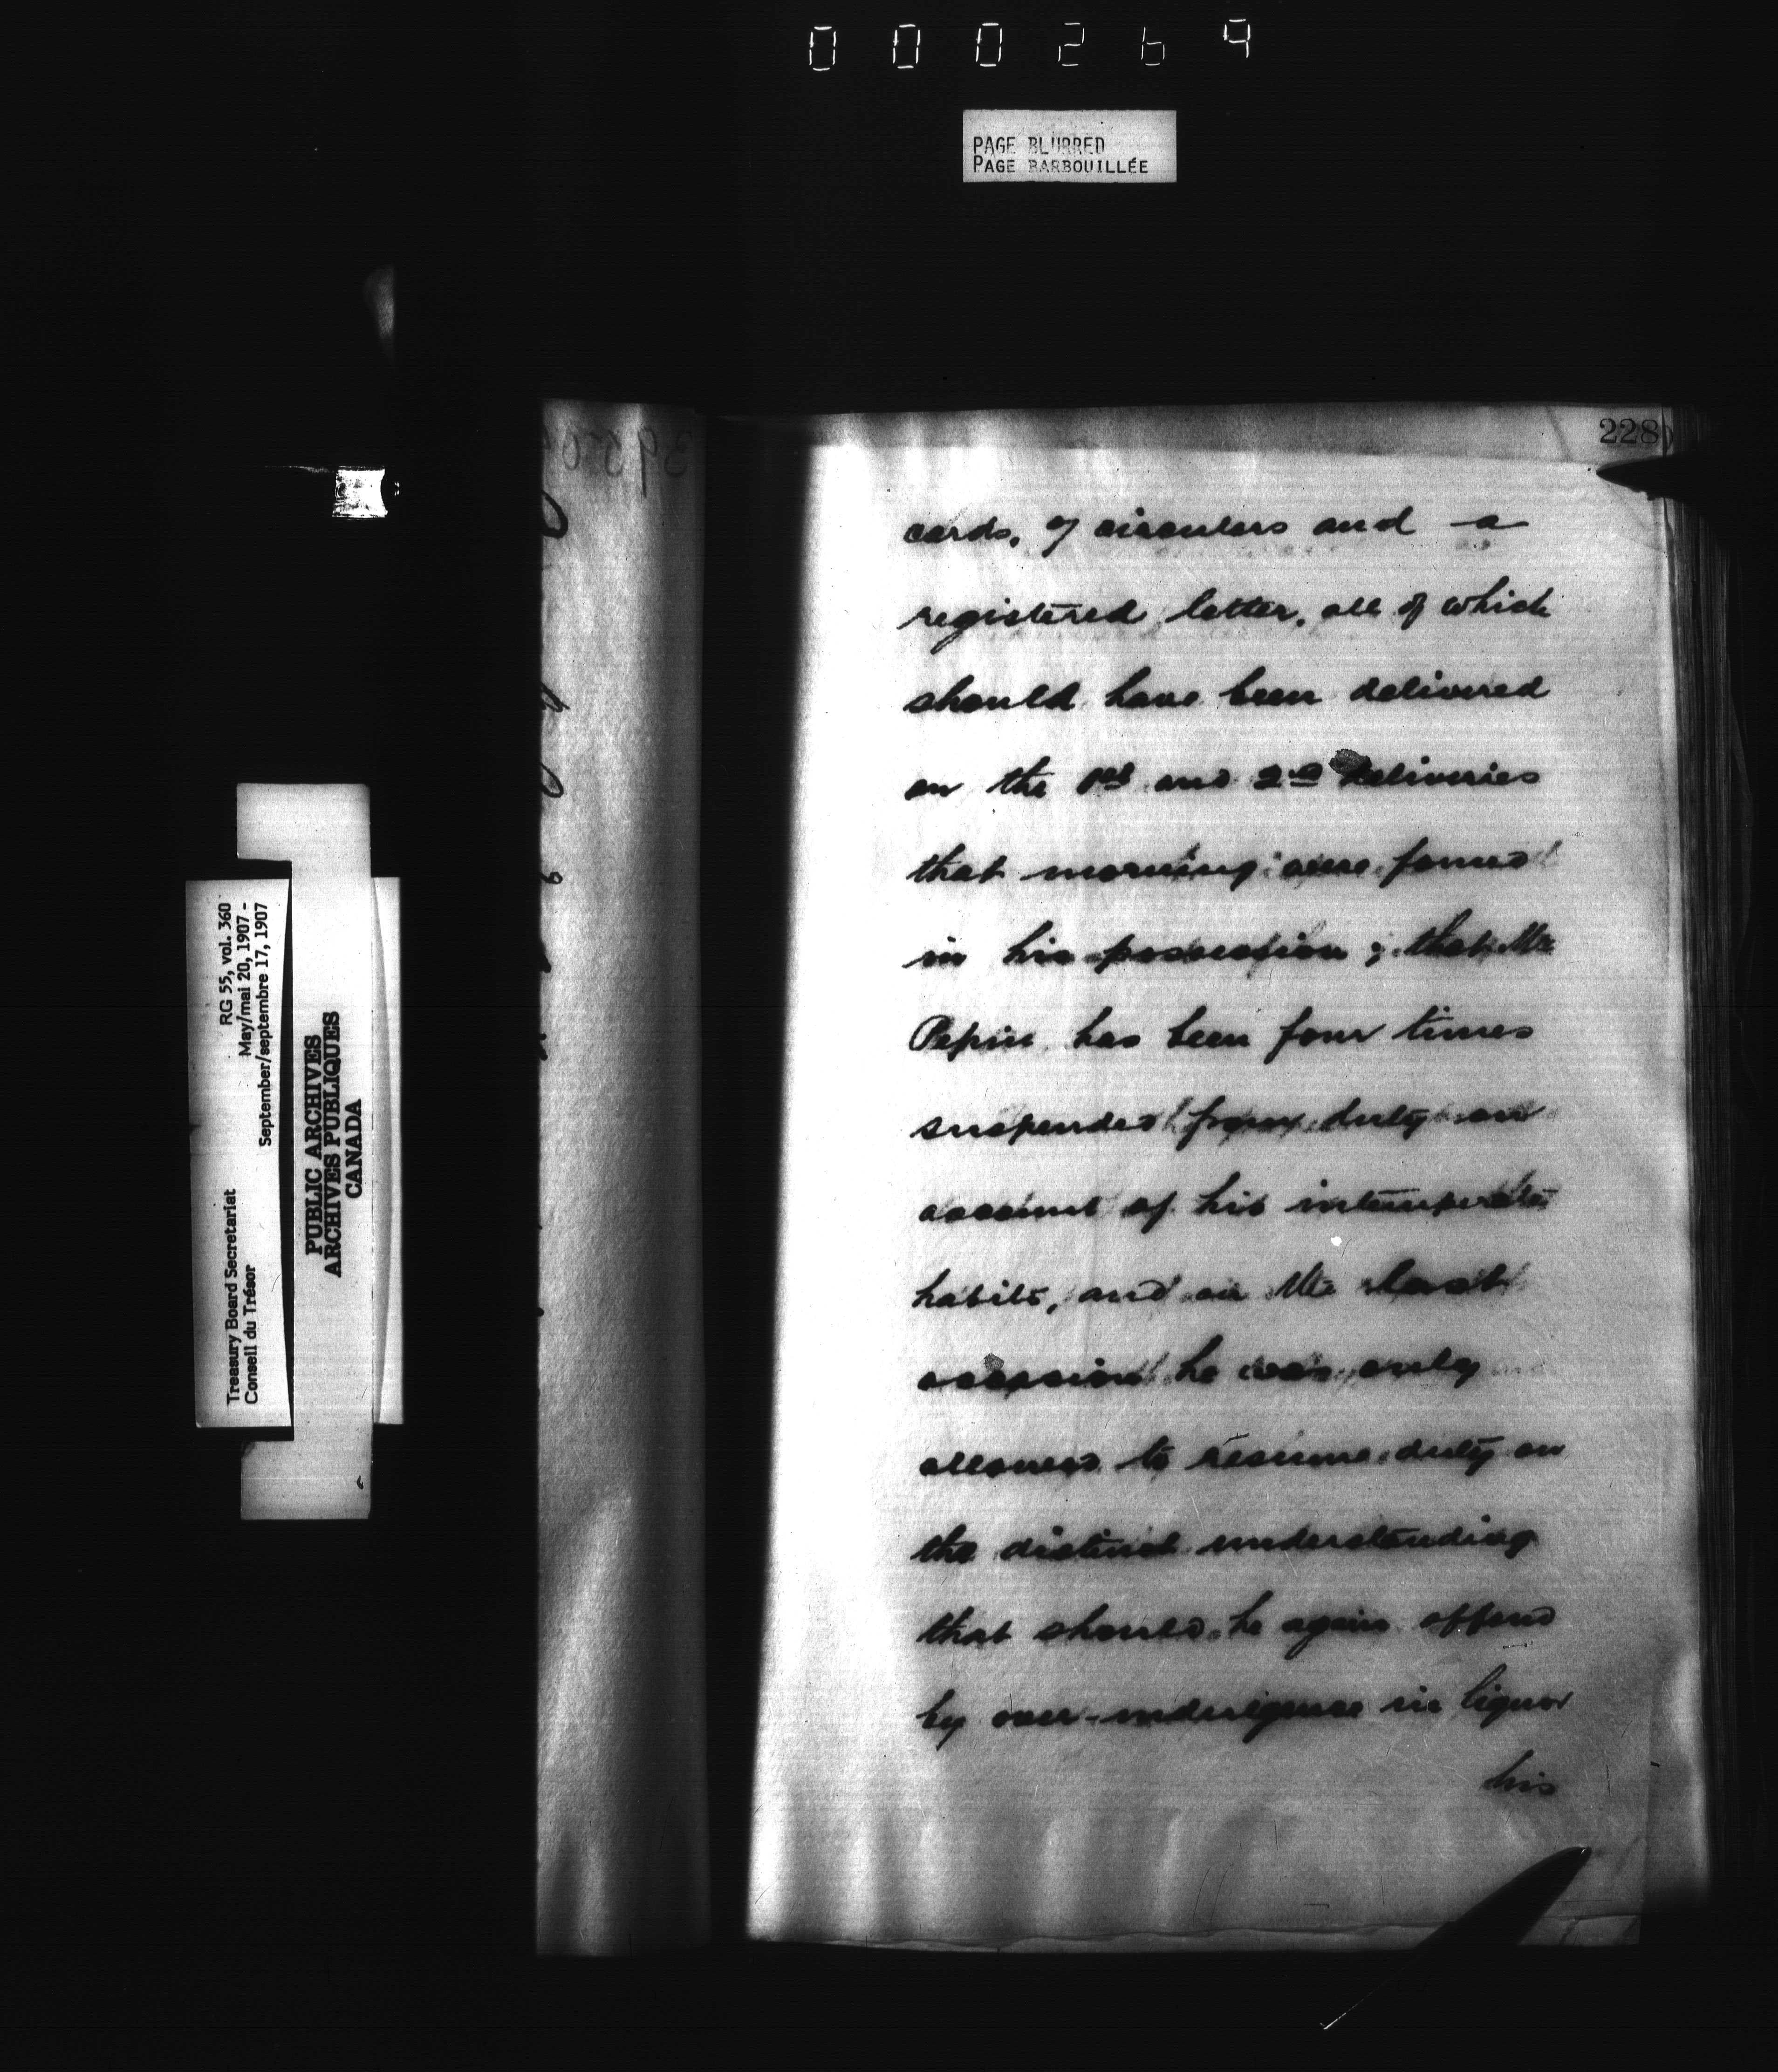 000269
PAGE BLURRED
PAGE BARBOUILLÉE
228
cards, of circulars and a
registered letter, all of which
should have been delivered
on the 1st and 2nd deliveries
that morning were found
in his possession; that Mr
Pepin has been four times
suspended from duty on
account of his intemperate
habits, and on the last
occasion he was only
allowed to resume duty on
the distinct understanding
that should he again offend
by over-indulgence in liquor
his
RG 55, vol. 360
May/mai 20, 1907 -
September/septembre 17, 1907
Treasury Board Secretariat
Conseil du Trésor
PUBLIC ARCHIVES
ARCHIVES PUBLIQUES
CANADA